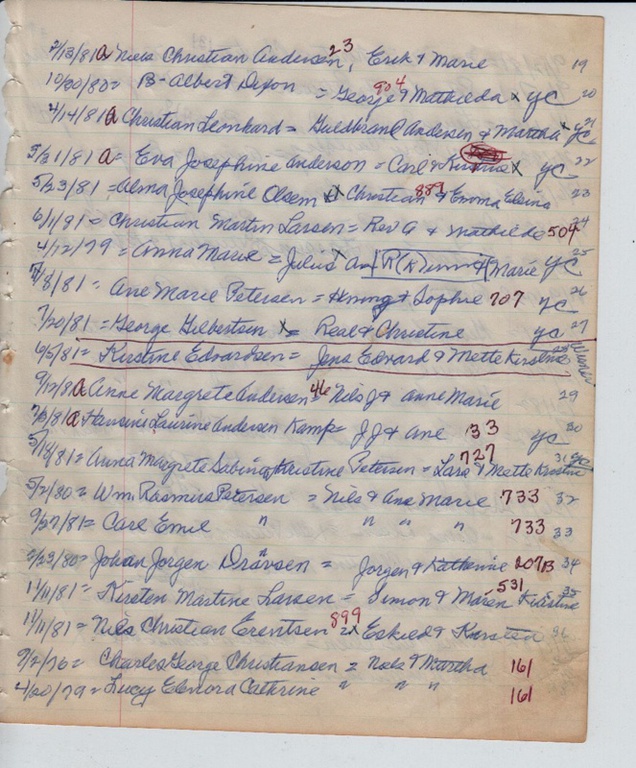 2/13/81 a Niels Christian Andersen, 23 Erik & Marie 19
10/20/80 = B- Albert Dixon = George & Mathilda 904 x yc 20
2/14/81 a Christian Leonhard = Guldbrand Andersen & Martha x yc 21
5/21/81 a = Eva Josephine Anderson = Carl & x yc 22
5/23/81 = Alma Josephine Olsem x Christian & Emma Elsina 889 23
6/11/81 = Christian Martin Larsen = & Mathilde 509 24
4/12/79 = Anna Marie = Julius x & Marie yc 25
/8/81 = Ane Marie Petersen = Henning & Sophie 707 yc 26
7/20/81 = George Gilbertsen x = Real & Christine yc 27
6/5/81 = Kirstine Edvardsen = Jens Edvard & Mette Kirstine
9/12/8 a Anine Margrete Andersen = 46 Nils J & Anne Marie 29
/81 a Hansine Laurine Andersen Kamp = J J & Ane 133 yc 30
5/18/81 = Anna Margrete Sabina Kristine Petersen = Lars & Mette Kirstine 727 31 yc
5/2/80 = Wm. Rasmus Petersen = Nils & Ane Marie 733 32
9/27/81 = Carl Emil " " " " 733 33
2/23/80 = Johan Jorgen Dravsen = Jorgen & Katherine 207B 34
11/11/81 = Kirsten Martine Larsen = Simon & Maren Kirstine 531 35
11/11/81 = Niels Christian Erentsen 899 = x Eskild & Kirsten 36
9/2/76 = Charles George Christiansen = Nels & Martha 161
4/20/79 = Lucy Elenora Cathrine " " " 161